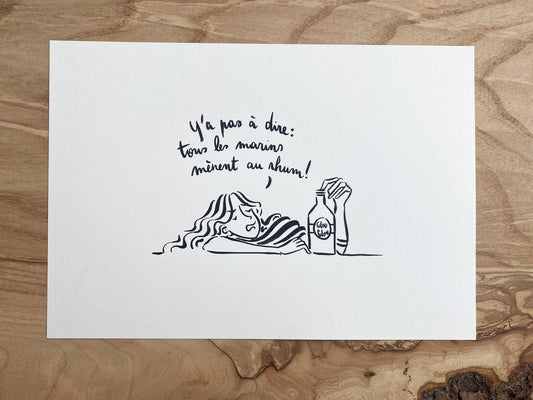 Y'a pas à dire:
tous les marins
mènent au rhum!